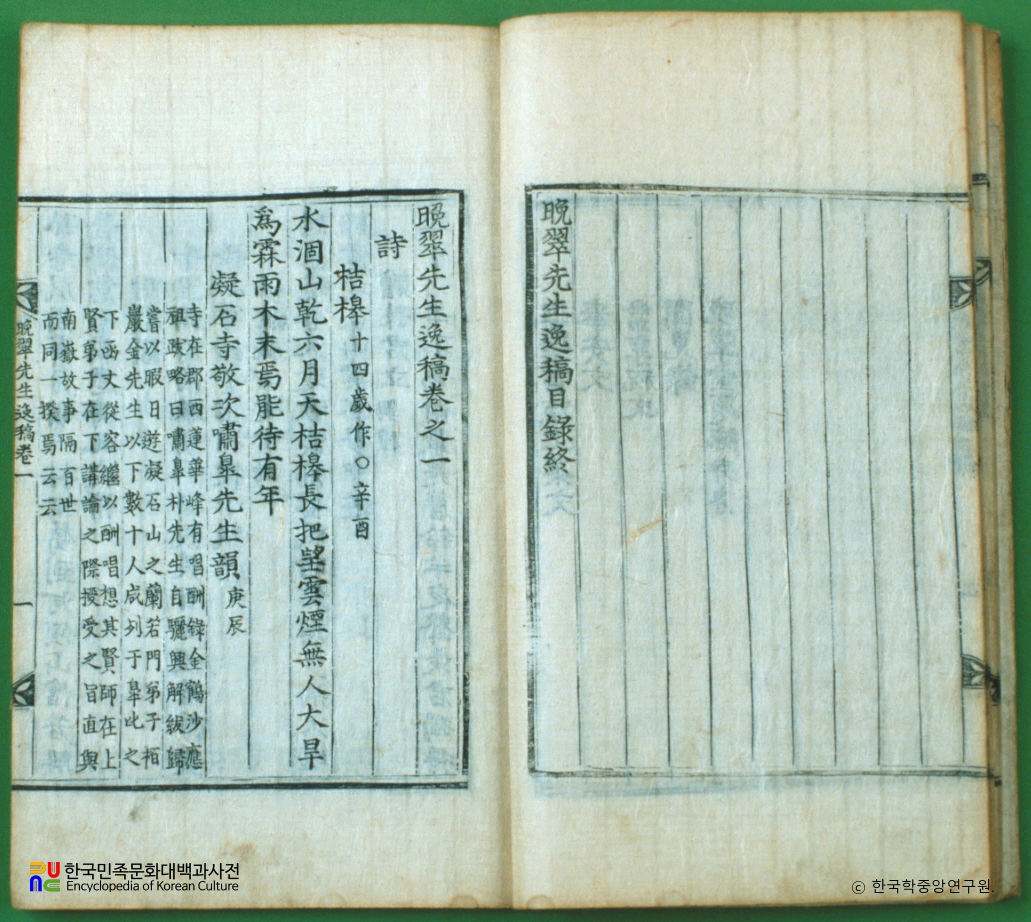 晩翠先生逸稿目錄終
晩翠先生逸稿卷之一
詩
桔槹十四歲作○辛酉
水涸山乾六月天桔槹長把望雲煙無人大旱
爲霖雨木末焉能待有年
凝石寺敬次嘯皐先生韻庚辰
寺在郡西蓮華峰有唱酬錄金鶴沙應
祖跋略曰嘯皐朴先生自驪興解紱歸
嘗以暇日遊凝石山之蘭若門弟子栢
巖金先生以下數十人咸列于皐比之
下函丈從容繼以酬唱想其賢師在上
賢弟子在下講論之際授受之旨直與
南嶽故事隔百世
而同一揆焉云云
晩翠先生逸稿卷一
一
한국민족문화대백과사전
Encyclopedia of Korean Culture
© 한국학중앙연구원